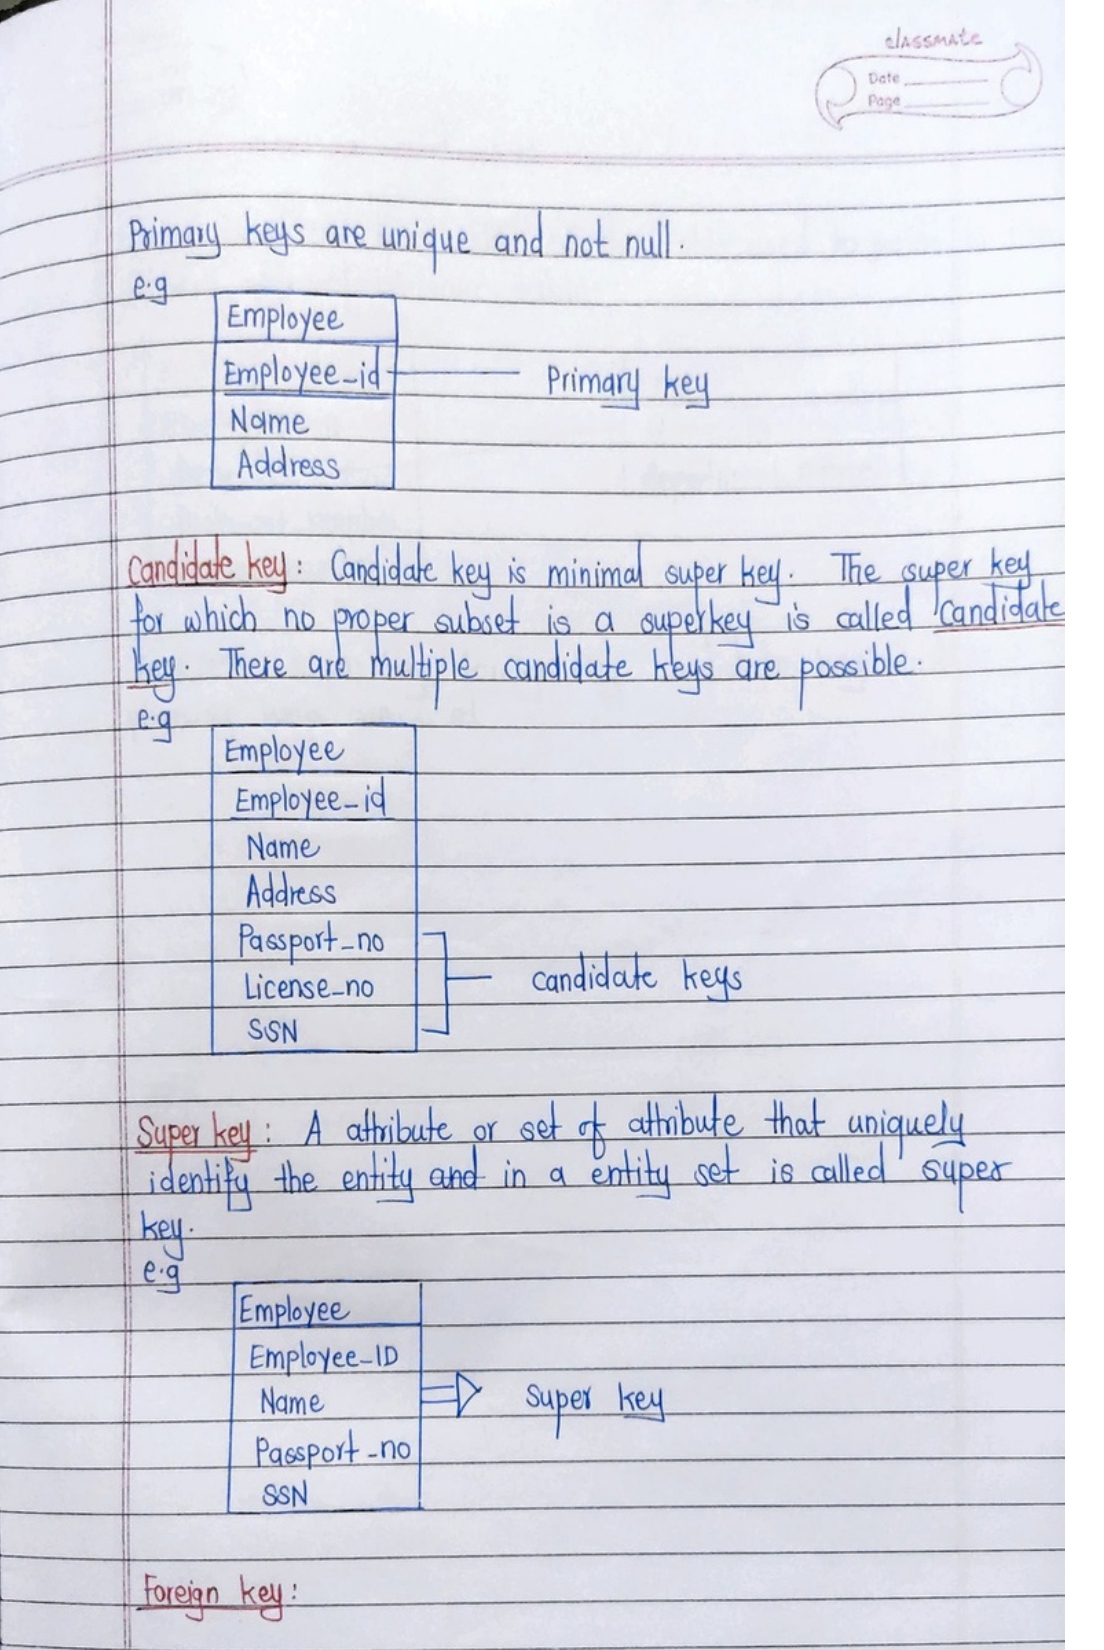 classmate
Date
Page
Primary keys are unique and not null.
e.g
Employee
Employee_id
Primary key
Name
Address
Candidate key: Candidate key is minimal super key. The super key
for which no proper subset is a superkey is called Candidate
key. There are multiple candidate keys are possible.
e.g
Employee
Employee_id
Name
Address
Passport_no
License_no
candidate keys
SSN
Super key: A attribute or set of attribute that uniquely
identify the entity and in a entity set is called super
key.
e.g
Employee
Employee_ID
Name
Super key
Passport_no
SSN
Foreign key: